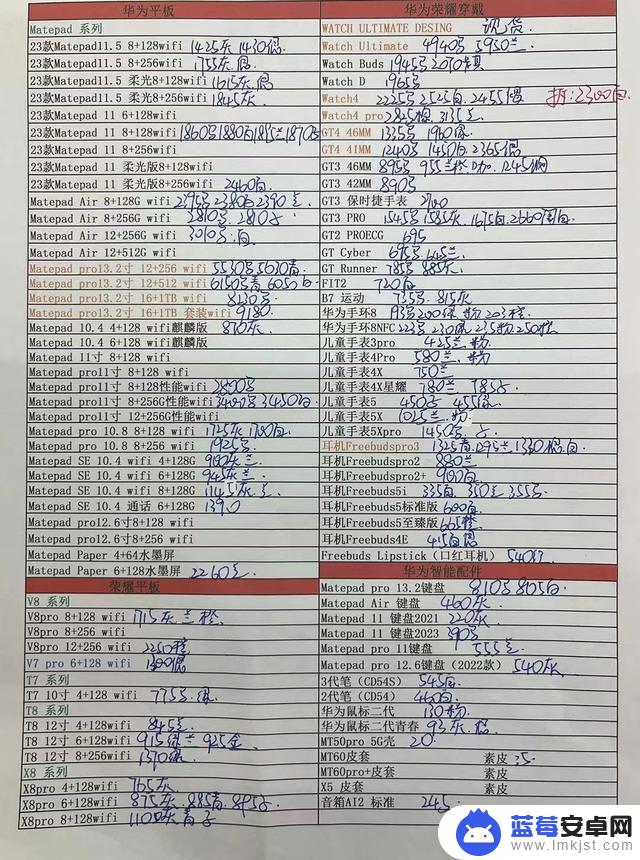 华为平板
Matepad 系列
23款Matepad11.5 8+128wifi 1425灰 1430
23款Matepad11.5 8+256wifi 1755灰
23款Matepad11.5 柔光8+128wifi 1615灰
23款Matepad11.5 柔光8+256wifi 1845灰
23款Matepad 11 6+128wifi
23款Matepad 11 8+128wifi 1860 1880白
23款Matepad 11 8+256wifi
23款Matepad 11 柔光版8+128wifi
23款Matepad 11 柔光版8+256wifi 2460白
Matepad Air 8+128G wifi 2395 2380 2390
Matepad Air 8+256G wifi 2810 2810
Matepad Air 12+256G wifi 3010 白
Matepad Air 12+512G wifi
Matepad pro13.2寸 12+256 wifi 5530 5630青
Matepad pro13.2寸 12+512 wifi 6150 青 6050白
Matepad pro13.2寸 16+1TB wifi 8230
Matepad pro13.2寸 16+1TB 套装wifi 9180
Matepad 10.4 4+128 wifi麒麟版 870灰
Matepad 10.4 6+128 wifi麒麟版
Matepad 11寸 8+128 wifi
Matepad pro11寸 8+128 wifi
Matepad pro11寸 8+128性能wifi
Matepad pro11寸 8+256G性能wifi 3450白
Matepad pro11寸 12+256G性能wifi
Matepad pro 10.8 8+128 wifi 1725灰
Matepad pro 10.8 8+256 wifi 1925
Matepad SE 10.4 wifi 4+128G 900灰
Matepad SE 10.4 wifi 6+128G 945灰
Matepad SE 10.4 wifi 8+128G 1145灰
Matepad SE 10.4 通话 6+128G 1390
Matepad pro12.6寸8+128 wifi
Matepad pro12.6寸8+256 wifi
Matepad Paper 4+64水墨屏
Matepad Paper 6+128水墨屏 2260
荣耀平板
V8 系列
V8pro 8+128 wifi 1715灰 兰 橙
V8pro 8+256 wifi
V8pro 12+256 wifi 2250橙
V7 pro 6+128 wifi 1300
T7 系列
T7 10寸 4+128 wifi 775
T8 系列
T8 12寸 4+128wifi 845
T8 12寸 6+128wifi 915 925金
T8 12寸 8+256wifi 1370绿
X8 系列
X8pro 4+128wifi 765灰
X8pro 6+128wifi 875灰 885青 895
X8pro 8+128wifi 1100灰 青
华为荣耀穿戴
WATCH ULTIMATE DESING 现货
Watch Ultimate 4940 5950兰
Watch Buds 1945 2070
Watch D 1965
Watch4 2225 2525白 2455 拆:2300白
Watch4 pro 2825 3135
GT4 46MM 1335 1960绿
GT4 41MM 1240 1450白 2365
GT3 46MM 895 955 1245钢
GT3 42MM 890
GT3 保时捷手表 2700
GT3 PRO 1545 1585灰 1675白 2660陶白
GT2 PROECG 695
GT Cyber 695 645兰
GT Runner 785 885灰
FIT2 720白
B7 运动 735 815灰
华为手环8 193 200绿 粉 203橙
华为手环8NFC 223 230绿 235粉 250橙
儿童手表3pro 425兰 粉
儿童手表4Pro 580兰 粉
儿童手表4X 750兰
儿童手表4X星耀 780兰 785
儿童手表5 450 455绿
儿童手表5X 1025兰 粉
儿童手表5Xpro 1450
耳机Freebudspro3 1325青 1295兰 1330 白
耳机Freebudspro2 880兰
耳机Freebudspro2+ 900白
耳机Freebuds5i 335白 350兰 355
耳机Freebuds5标准版 600白
耳机Freebuds5至臻版 665橙
耳机Freebuds4E 415白
Freebuds Lipstick（口红耳机） 540红
华为智能配件
Matepad pro 13.2键盘 810 805白
Matepad Air 键盘 460灰
Matepad 11 键盘2021 220灰
Matepad 11 键盘2023 390
Matepad pro 11键盘 555
Matepad pro 12.6键盘（2022款） 540灰
3代笔（CD54S） 545白
2代笔（CD54） 460白
华为鼠标二代 130粉
华为鼠标二代青春 93灰
MT50pro 5G壳 20
MT60皮套 素皮 35
MT60pro+皮套 素皮
X5 皮套 素皮
音箱AI2 标准 245
蓝莓安卓网
www.lmkjst.com